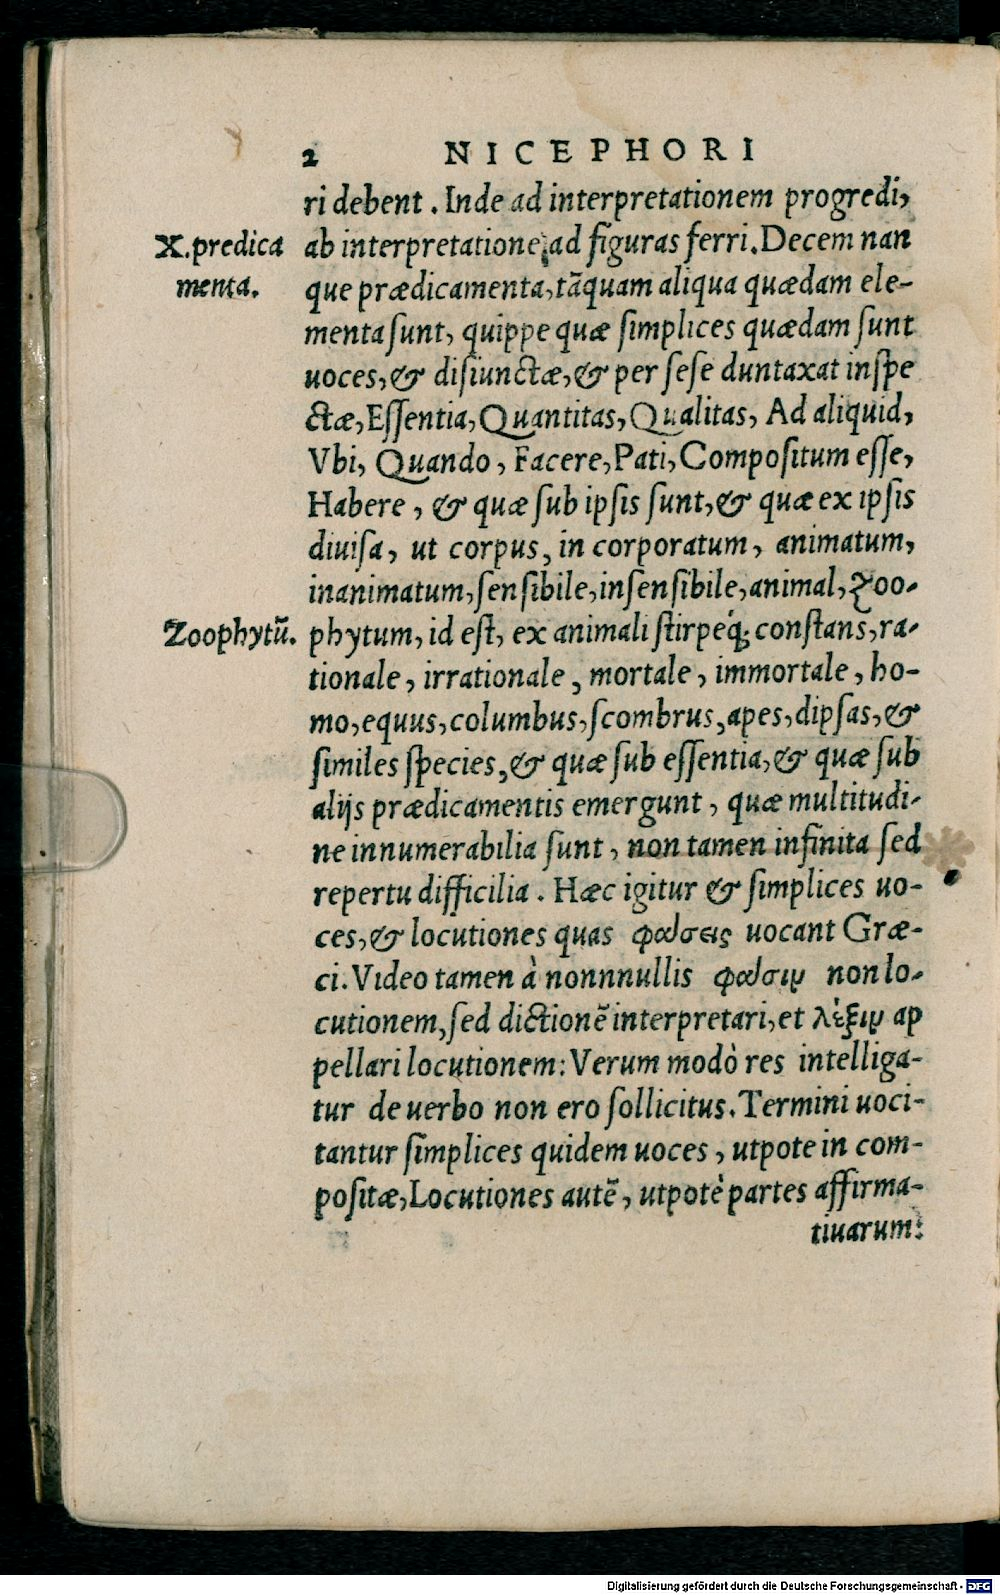 2 NICEPHORI
ri debent. Inde ad interpretationem progredi,
X. predica
menta.
ab interpretatione ad figuras ferri. Decem nan
que prædicamenta, tãquam aliqua quædam ele-
menta sunt, quippe quæ simplices quædam sunt
uoces, & disiunctæ, & per sese duntaxat inspe
ctæ, Essentia, Quantitas, Qualitas, Ad aliquid,
Vbi, Quando, Facere, Pati, Compositum esse,
Habere, & quæ sub ipsis sunt, & quæ ex ipsis
diuisa, ut corpus, in corporatum, animatum,
inanimatum, sensibile, insensibile, animal, zoo-
Zoophytũ.
phytum, id est, ex animali stirpeq́; constans, ra-
tionale, irrationale, mortale, immortale, ho-
mo, equus, columbus, scombrus, apes, dipsas, &
similes species, & quæ sub essentia, & quæ sub
alijs prædicamentis emergunt, quæ multitudi-
ne innumerabilia sunt, non tamen infinita sed
repertu difficilia. Hæc igitur & simplices uo-
ces, & locutiones quas φάσεις uocant Græ-
ci. Video tamen à nonnnullis φάσιν non lo-
cutionem, sed dictionẽ interpretari, et λέξιν ap
pellari locutionem: Verum modò res intelliga-
tur de uerbo non ero sollicitus. Termini uoci-
tantur simplices quidem uoces, utpote in com-
positæ, Locutiones autẽ, utpotè partes affirma-
tiuarum:
Digitalisierung gefördert durch die Deutsche Forschungsgemeinschaft - DFG